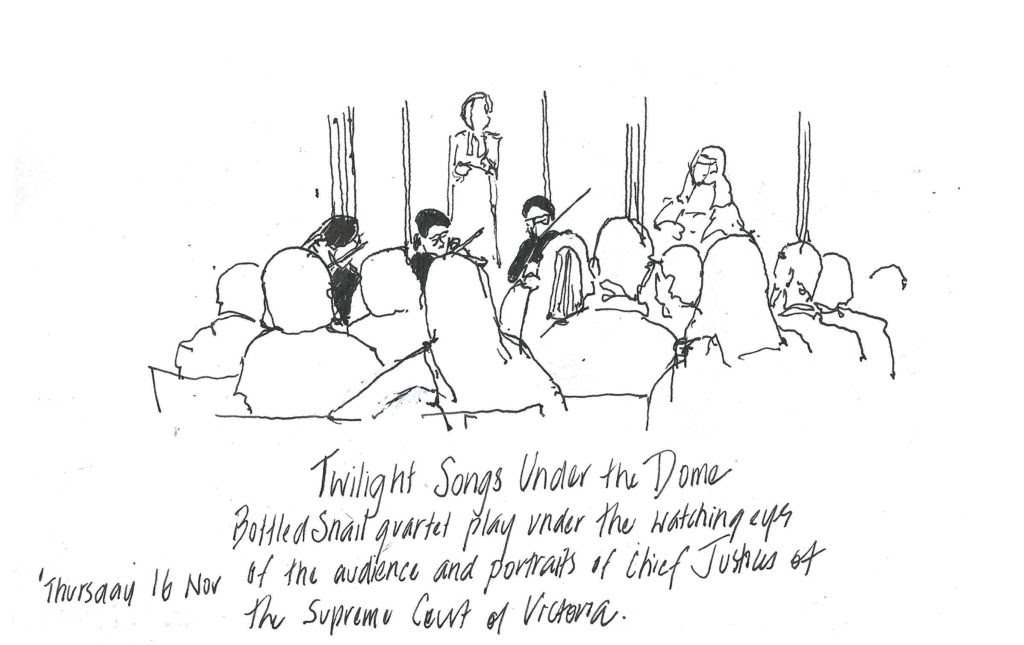 Twilight Songs Under the Dome
Bottled Snail quartet play under the watching eyes
of the audience and portraits of Chief Justices of
'Thursday 16 Nov
the Supreme Court of Victoria.